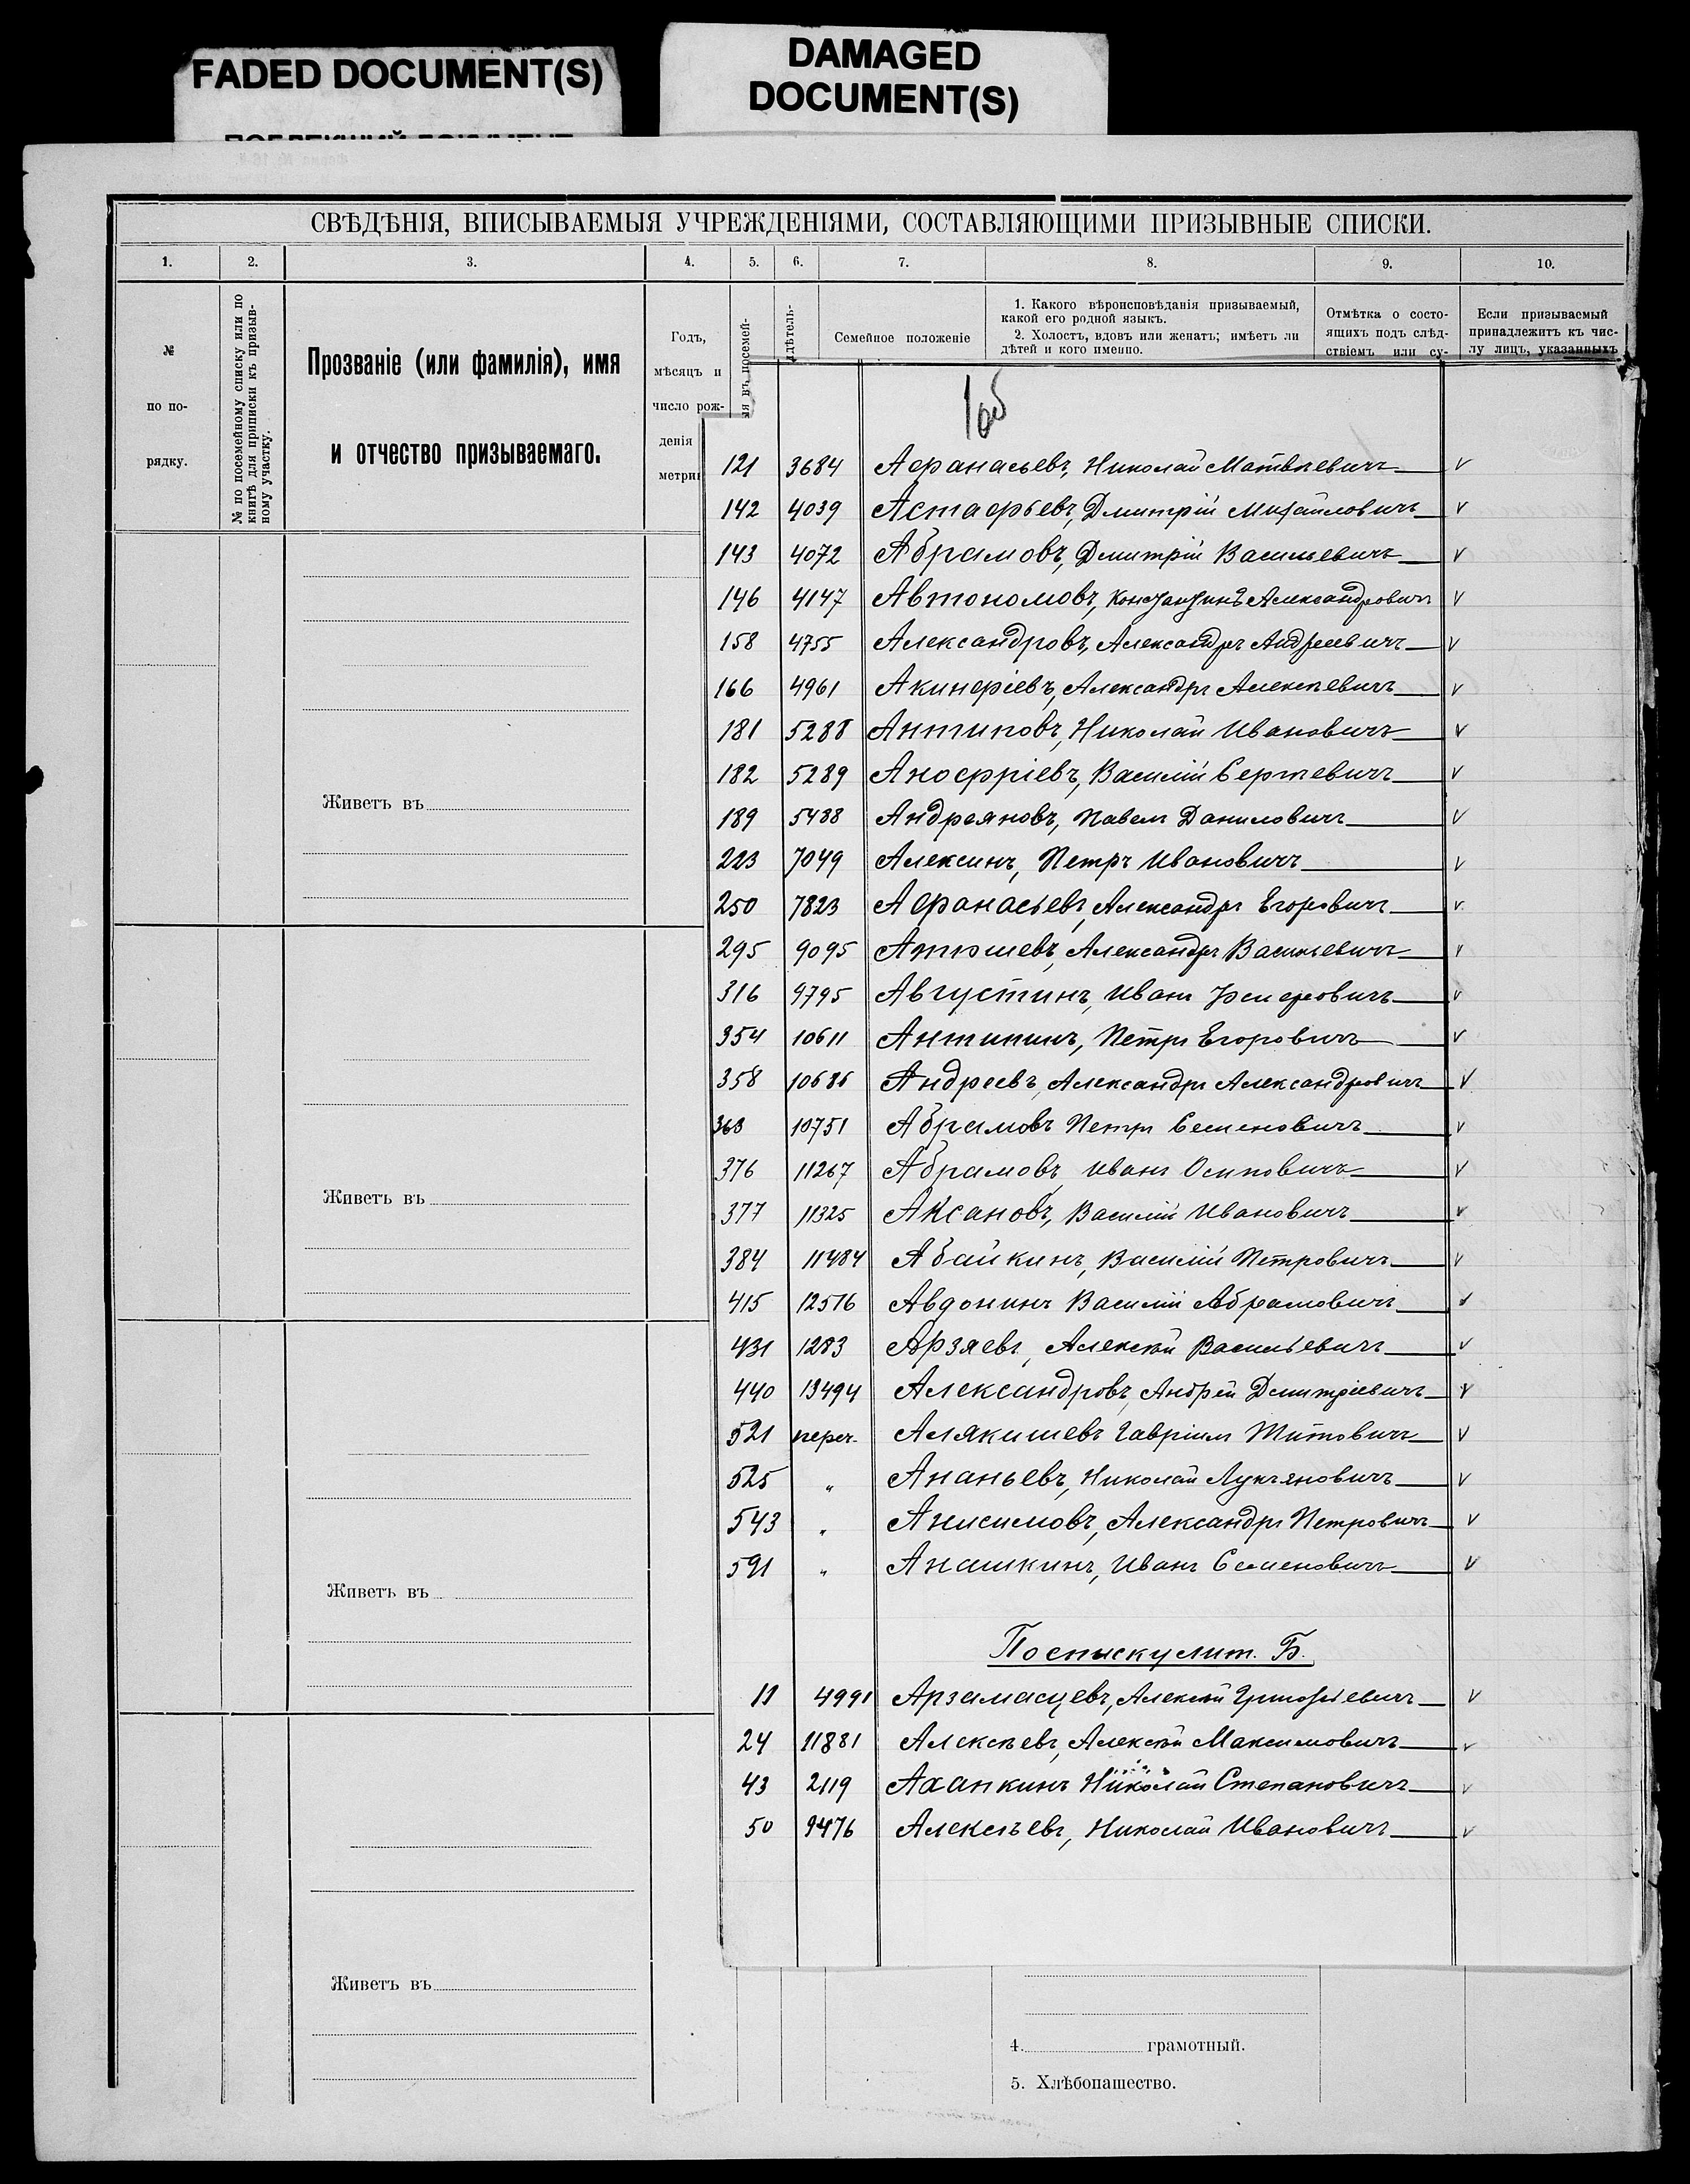 FADED DOCUMENT(S)
DAMAGED
DOCUMENT(S)
СВѢДѢНІЯ, ВПИСЫВАЕМЫЯ УЧРЕЖДЕНІЯМИ, СОСТАВЛЯЮЩИМИ ПРИЗЫВНЫЕ СПИСКИ.
1. 2. 3. 4. 5. 6. 7. 8. 9. 10.
№
по по-
рядку.
№ по посемейному списку или по
книгѣ для приписки къ призыв-
ному участку.
Прозваніе (или фамилія), имя
и отчество призываемаго.
Годъ,
мѣсяцъ и
число рож-
денія
метрик
Семейное положеніе
1. Какого вѣроисповѣданія призываемый,
какой его родной языкъ.
2. Холостъ, вдовъ или женатъ; имѣетъ ли
дѣтей и кого именно.
Отмѣтка о состо-
ящихъ подъ слѣд-
ствіемъ или су-
Если призываемый
принадлежитъ къ чис-
лу лицъ, указанныхъ
121 3684 Афанасьевъ, Николай Матвѣевичъ v
142 4039 Астафьевъ, Дмитрій Михайловичъ v
143 4072 Абрамовъ, Дмитрій Васильевичъ v
146 4147 Автономовъ, Константинъ Александровичъ v
158 4755 Александровъ, Александръ Андреевичъ v
166 4961 Акинфіевъ, Александръ Алексѣевичъ v
181 5288 Антиповъ, Николай Ивановичъ v
182 5289 Аноффріевъ, Василій Сергѣевичъ v
189 5488 Андреяновъ, Павелъ Даниловичъ v
223 7049 Алексинъ, Петръ Ивановичъ v
250 7823 Афанасьевъ, Александръ Егоровичъ v
295 9095 Александръ Васильевичъ v
316 9795 Августинъ, Иванъ v
354 10611 Антипинъ, Петръ Егоровичъ v
358 10686 Андреевъ, Александръ Александровичъ v
368 10751 Абрамовъ Петръ Семеновичъ v
376 11267 Абрамовъ, Иванъ Осиповичъ v
377 11325 Аксановъ, Василій Ивановичъ v
384 11484 Абайкинъ, Василій Петровичъ v
415 12516 Авдонинъ Василій Абрамовичъ v
431 1283 Арзяевъ, Алексѣй Васильевичъ v
440 13494 Александровъ, Андрей Дмитріевичъ v
521 переч. Алякишевъ Гавріилъ Титовичъ v
525 „ Ананьевъ, Николай Лукъяновичъ v
543 „ Анисимовъ, Александръ Петровичъ v
591 „ Анашкинъ, Иванъ Семеновичъ v
По списку лит. Б.
11 4991 Арзамасцевъ, Алексѣй Григорьевичъ v
24 11881 Алексѣевъ, Алексѣй Максимовичъ v
43 2119 Аханкинъ Николай Степановичъ v
50 9476 Алексѣевъ, Николай Ивановичъ v
Живетъ въ
Живетъ въ
Живетъ въ
Живетъ въ
4. грамотный.
5. Хлѣбопашество.